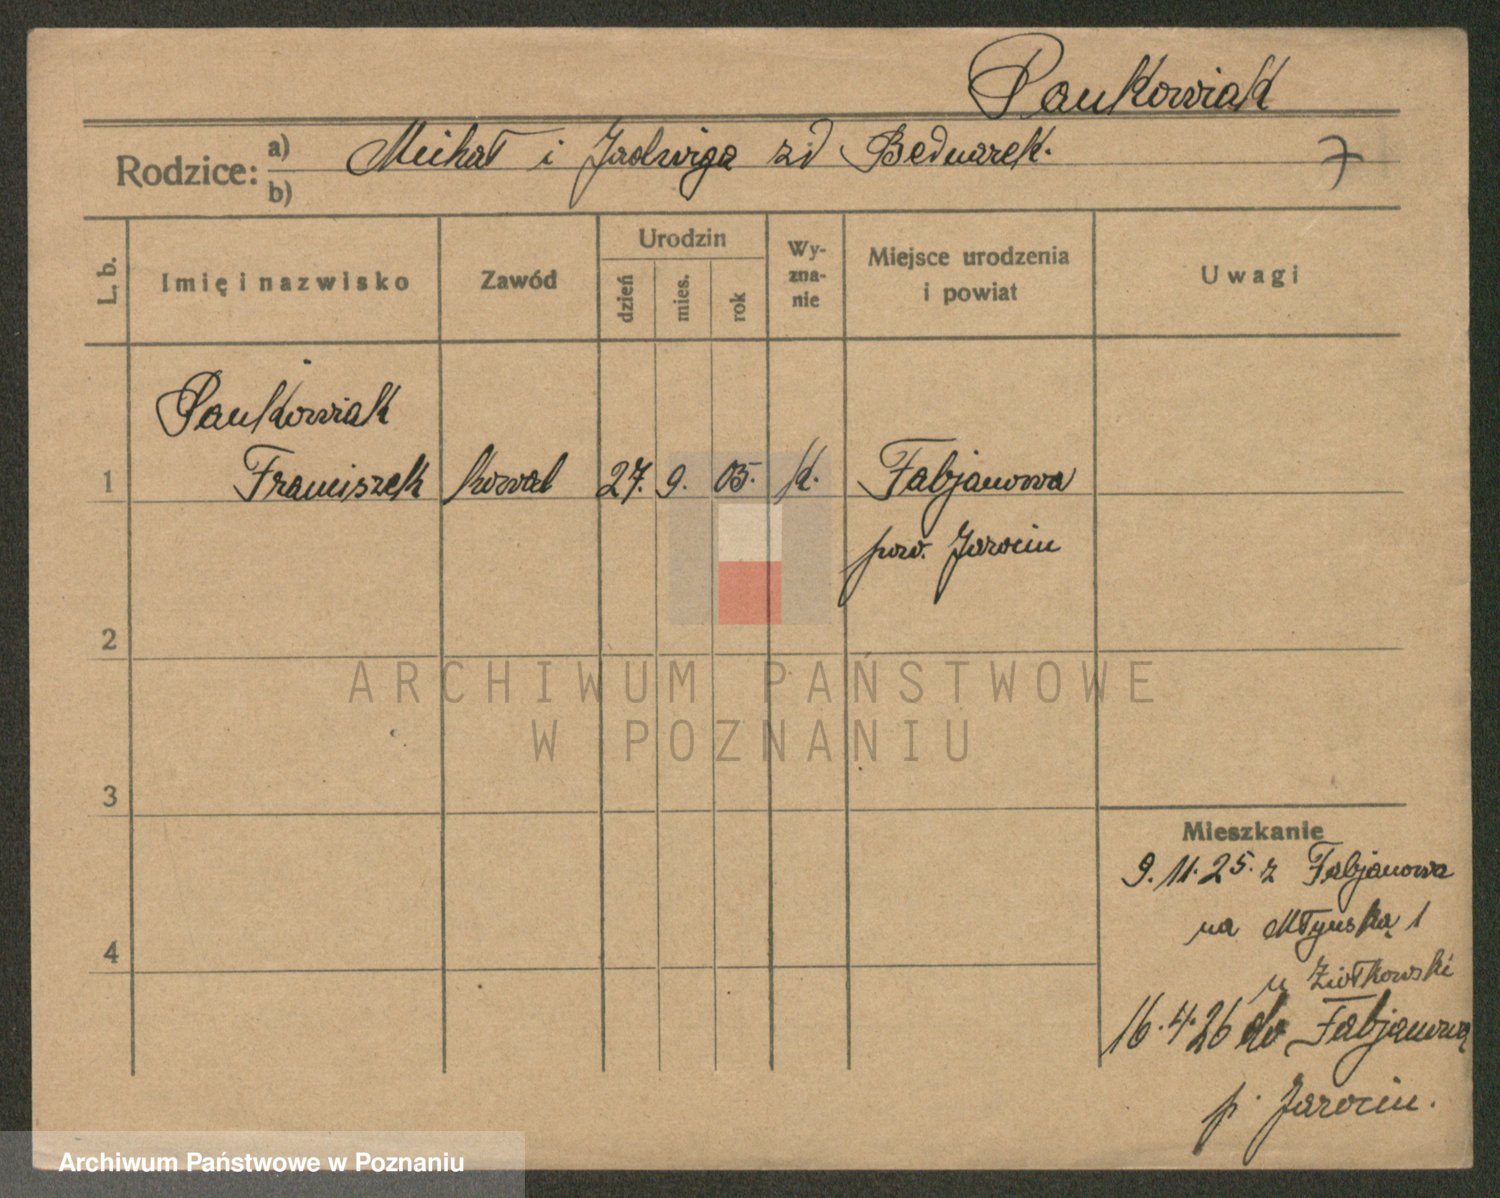 Pankowiak
Rodzice: a) Michał i Jadwiga zd Bednarek. 7
b)
L. b. Imię i nazwisko Zawód Urodzin dzień mies. rok Wy-zna-nie Miejsce urodzenia i powiat Uwagi
Pankowiak
1 Franciszek kowal 27. 9. 05. k. Fabjanowa
pow. Jarocin
2
ARCHIWUM PAŃSTWOWE
W POZNANIU
3
Mieszkanie
9.11.25. z Fabjanowa
na Młyńską 1
4
u Ziółkowski
16.4.26 do Fabjanowa
p. Jarocin.
Archiwum Państwowe w Poznaniu